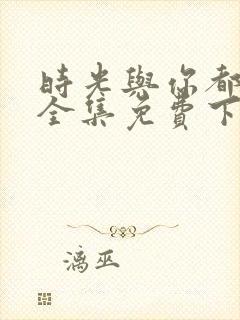 時光與你都
全集免費下
漓巫